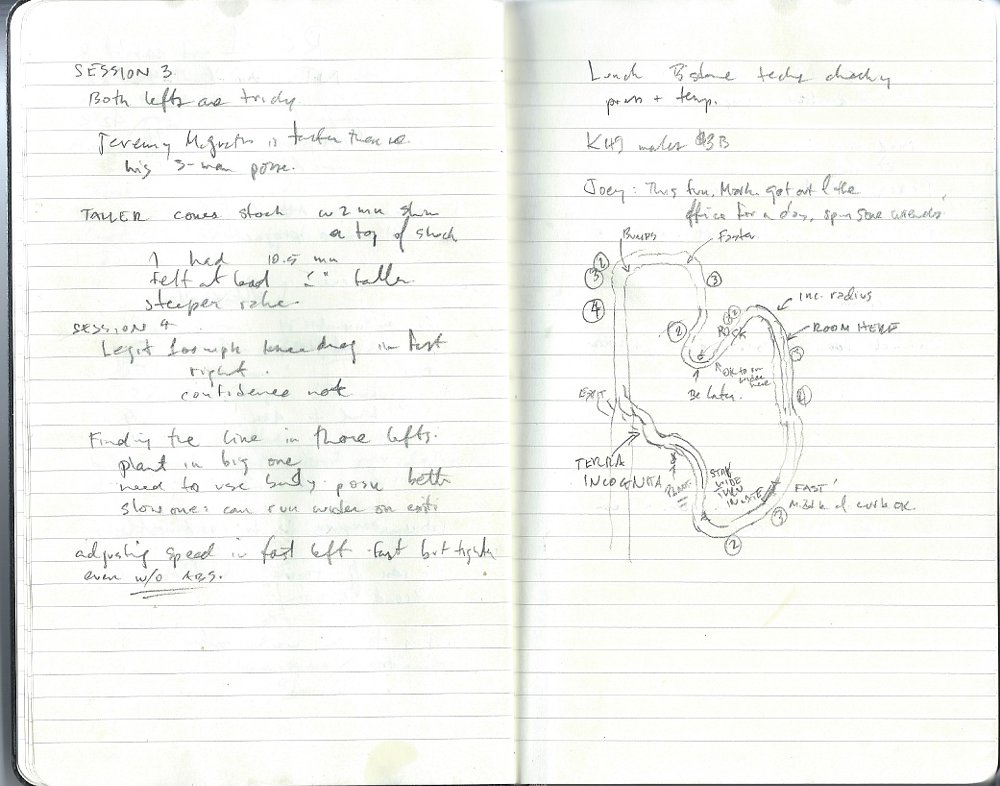 SESSION 3
Both lefts are tricky
Jeremy McGrath is faster than
his 3-man posse.
TALLER comes stock w 2 mm shim
a top of shock
I had 10.5 mm
felt at least taller
steeper rake.
SESSION 4
Legit 100 mph knee drag in fast
right.
confidence not
Finding the line in those lefts.
plant in big one
need to use body posn better
slow one: can run wider on exit
adjusting speed in fast left. Fast but tighter
even w/o ABS.
Lunch checking
press + temp.
makes 3B
Joey: This fun. Mark got out of the
office for a day, spin some
BUMPS
Faster
2
3
4
3
2
2
ROCK
inc. radius
ROOM HERE
3
OK to
here
Be later.
4
EXIT
TERRA
INCOGNITA
STAY
WIDE
THEN
FAST!
curb OK
3
2